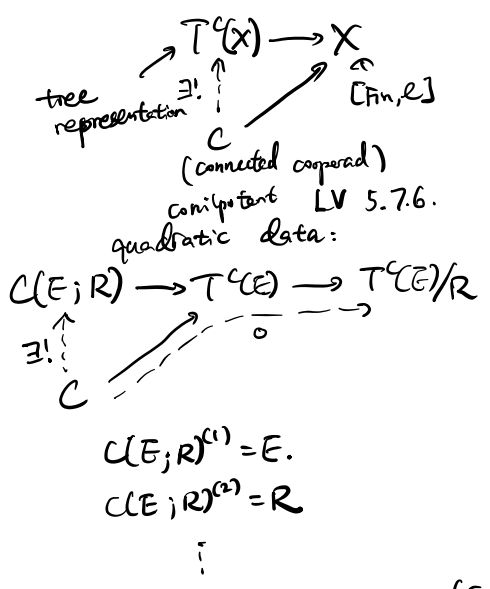 T^c(X) → X
tree representation
∃!
[Fin, C]
C
(connected cooperad)
conilpotent LV 5.7.6.
quadratic data:
C(E; R) → T^c(E) → T^c(E)/R
∃!
0
C
C(E; R)^(1) = E.
C(E; R)^(2) = R
⋮